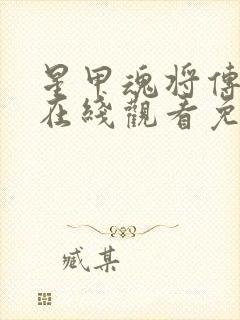 星甲魂将傳
在綫觀看免
臧某